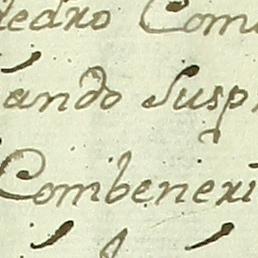 Pedro Com
ando Susp
Combeneri